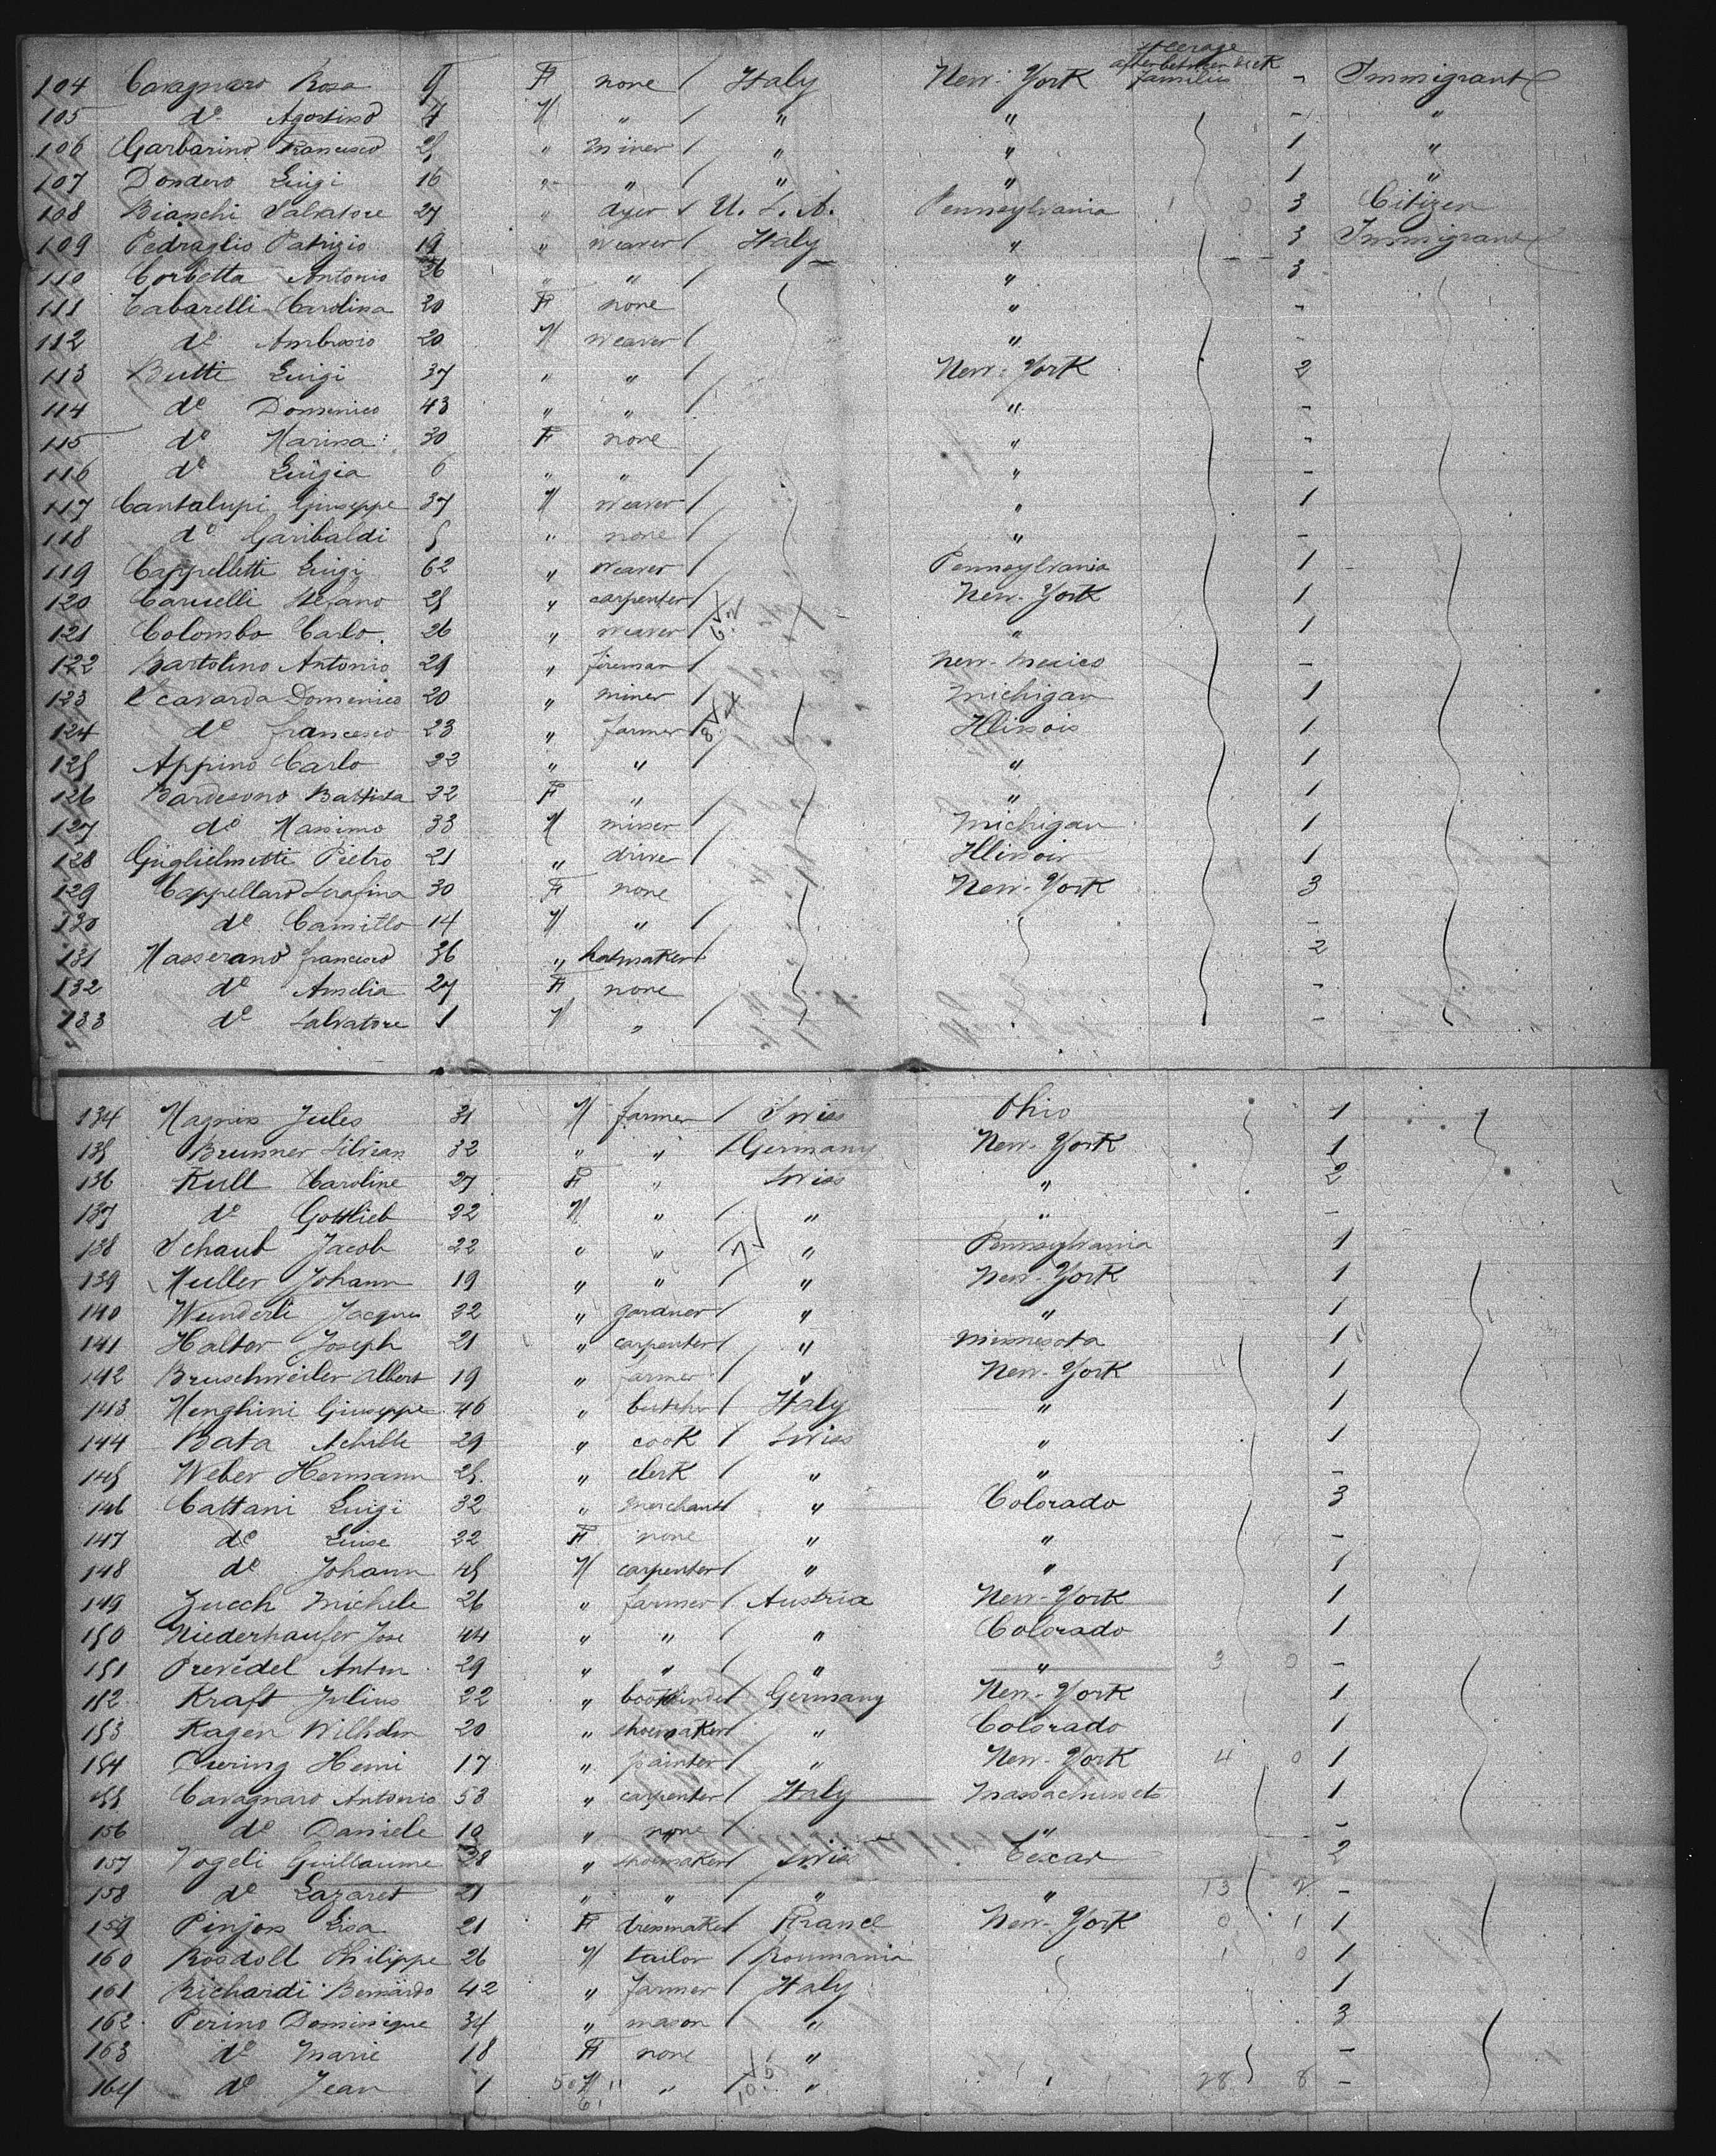 steerage
after between deck
104 Cavagnaro Rosa 9 F none / Italy New-York families - Immigrant
105 do Agostino 4 M " / " " - "
106 Garbarino Francesco 25 " miner / " " 1 "
107 Dondero Luigi 16 " " / " " 1 "
108 Bianchi Salvatore 27 " dyer / U.S.A. Pennsylvania 3 Citizen
109 Pedraglio Patrizio 19 " weaver / Italy " 3 Immigrant
110 Corbetta Antonio 26 " " / " 3
111 Cabarelli Carolina 20 F none " -
112 do Ambrosio 20 M weaver / " -
113 Butti Luigi 37 " " / New-York 2
114 do Domenico 43 " " / " -
115 do Marina 30 F none " -
116 do Luigia 6 " " / " -
117 Cantalupi Giuseppe 37 M weaver / " 1
118 do Garibaldi 5 " none / " -
119 Cappelletti Luigi 62 " weaver / Pennsylvania 1
120 Caruelli Stefano 25 " carpenter / New-York 1
121 Colombo Carlo 26 " weaver / " 1
122 Bartolino Antonio 29 " fireman / New-Mexico -
123 Scavarda Domenico 20 " miner / Michigan 1
124 do Francesco 23 " farmer / Illinois 1
125 Appino Carlo 22 " " / " 1
126 Bardesono Battista 22 F " / " 1
127 do Massimo 33 M miner / Michigan 1
128 Guglielmotti Pietro 21 " driver / Illinois 1
129 Cappellaro Serafina 30 F none New-York 3
130 do Camillo 14 M " / -
131 Masserano Francesco 36 " hatmaker / 2
132 do Amelia 27 F none -
133 do Salvatore 1 M " / -
134 Magnin Jules 31 M farmer / Swiss Ohio 1
135 Brunner Silvian 32 " " / Germany New-York 1
136 Kull Caroline 27 F " Swiss " 2
137 do Gottlieb 22 M " / " " -
138 Schaub Jacob 22 " " / " Pennsylvania 1
139 Muller Johann 19 " " / " New-York 1
140 Wunderli Jacques 32 " gardner / " " 1
141 Halter Joseph 21 " carpenter / " Minnesota 1
142 Bruschweiler Albert 19 " farmer / " New-York 1
143 Menghini Giuseppe 46 " butcher / Italy " 1
144 Bata Achille 29 " cook / Swiss " 1
145 Weber Hermann 25 " clerk / " " -
146 Cattani Luigi 32 " merchant / " Colorado 3
147 do Luise 22 F none " " -
148 do Johann 45 M carpenter / " " 1
149 Zucch Michele 26 " farmer / Austria New-York 1
150 Niederhaufer Jose 44 " " / " Colorado 1
151 Prevedel Anton 29 " " / " " 3 0 -
152 Kraft Julius 22 " bookbinder / Germany New-York 1
153 Kagen Wilhelm 20 " shoemaker / " Colorado 1
154 Duering Henri 17 " painter / " New-York 4 0 1
155 Cavagnaro Antonio 53 " carpenter / Italy Massachussets 1
156 do Daniele 10 " none / " " -
157 Vogeli Guillaume 28 " shoemaker / Swiss Texas 2
158 do Lazaret 21 " " / " " 13 2 -
159 Pinjon Lisa 21 F dressmaker / France New-York 0 1 1
160 Rosdoll Philippe 26 M tailor / Roumania 0 1
161 Richardi Bernardo 42 " farmer / Italy 1
162 Perino Dominique 34 " mason / " 3
163 do Marie 18 F none " -
164 do Jean 1 M " / " 28 8 -